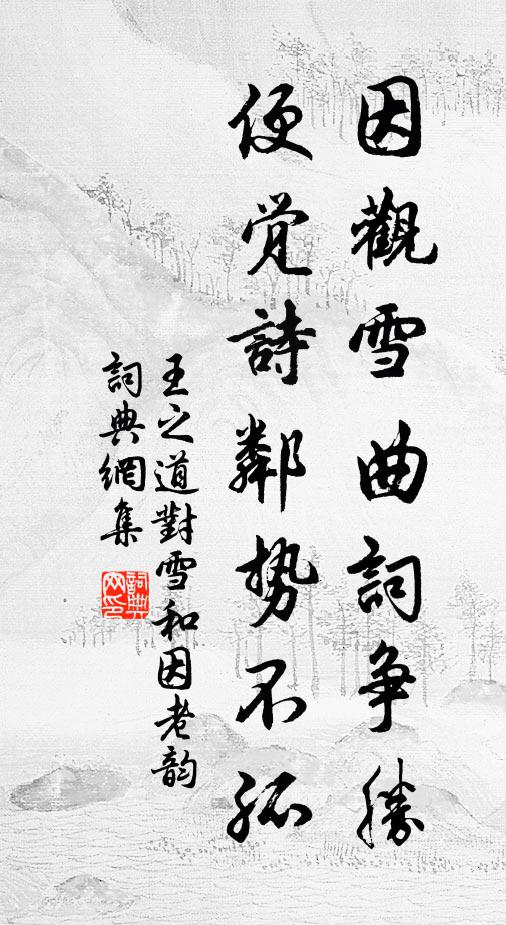 因觀雪曲詞争勝
便觉詩鄰势不孤
王之道對雪和因老韵
詞典網集
詞典网印